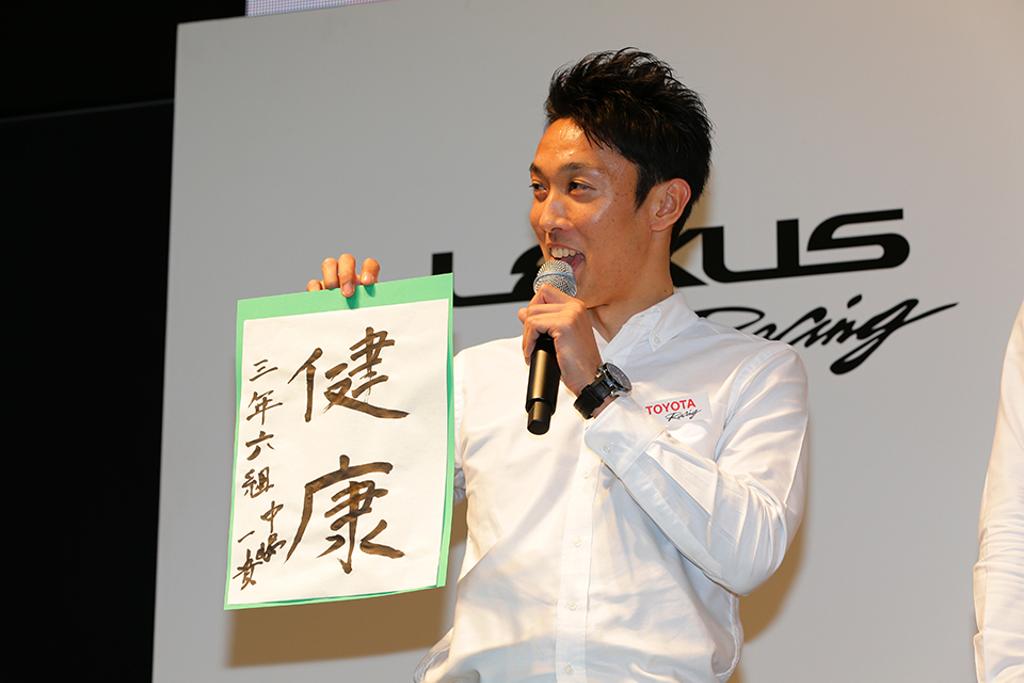 LEXUS
Racing
健康
三年六組 中嶋一貴
TOYOTA
Racing